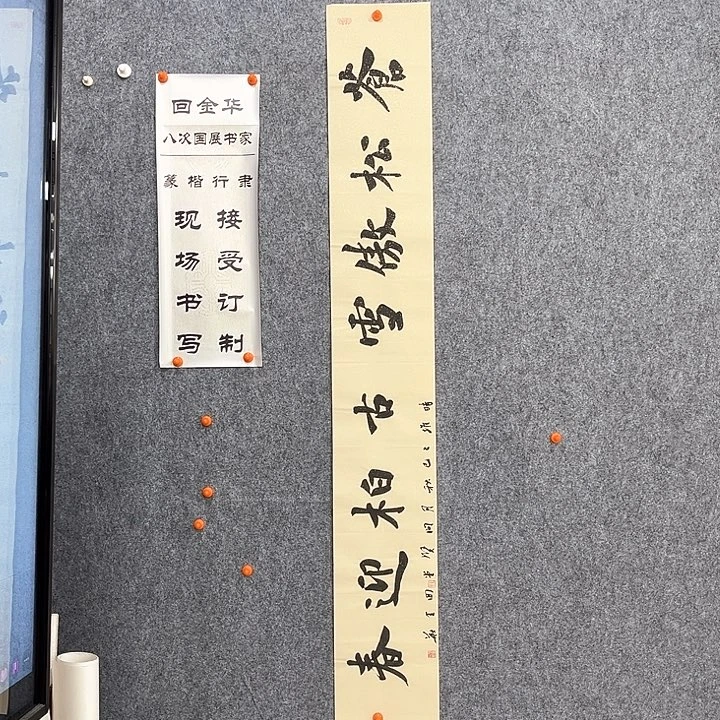 回金华
八次国展书家
篆楷行隶
现场书写
接受订制
蒼松傲雪古柏迎春
時維乙巳秋月